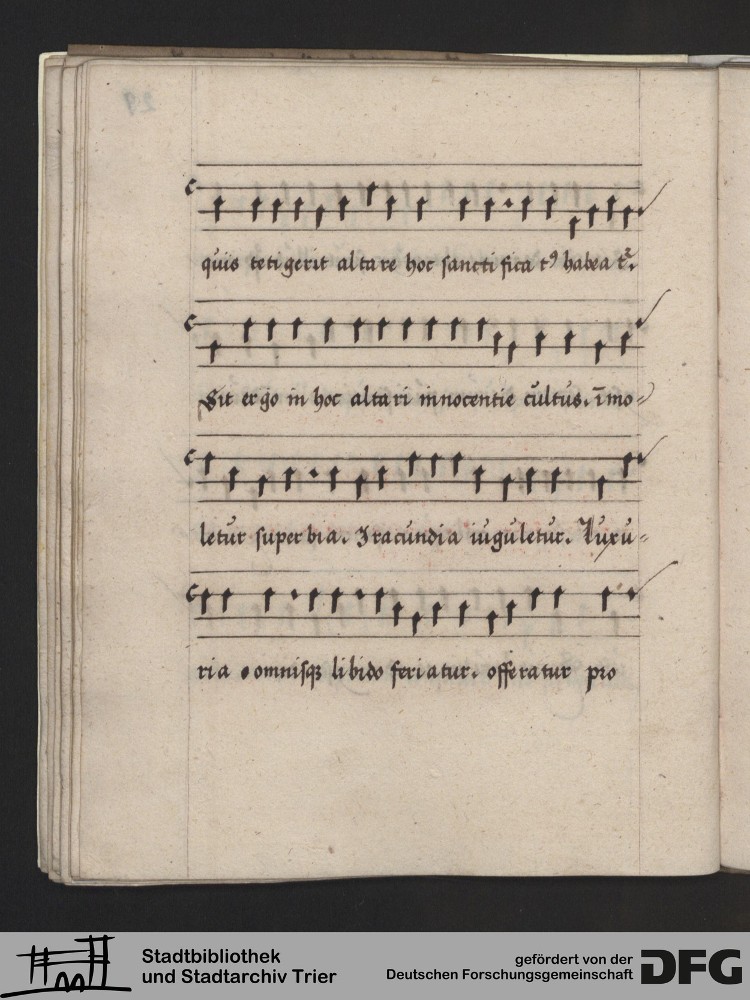 29
quis tetigerit altare hoc sanctificatꝰ habeatᷣ.
Sit ergo in hoc altari innocentie cultus. īmo⸗
letur superbia. Iracundia iuguletur. Luxu⸗
ria omnisqꝫ libido feriatur. offeratur pro
Stadtbibliothek
und Stadtarchiv Trier
gefördert von der
Deutschen Forschungsgemeinschaft
DFG